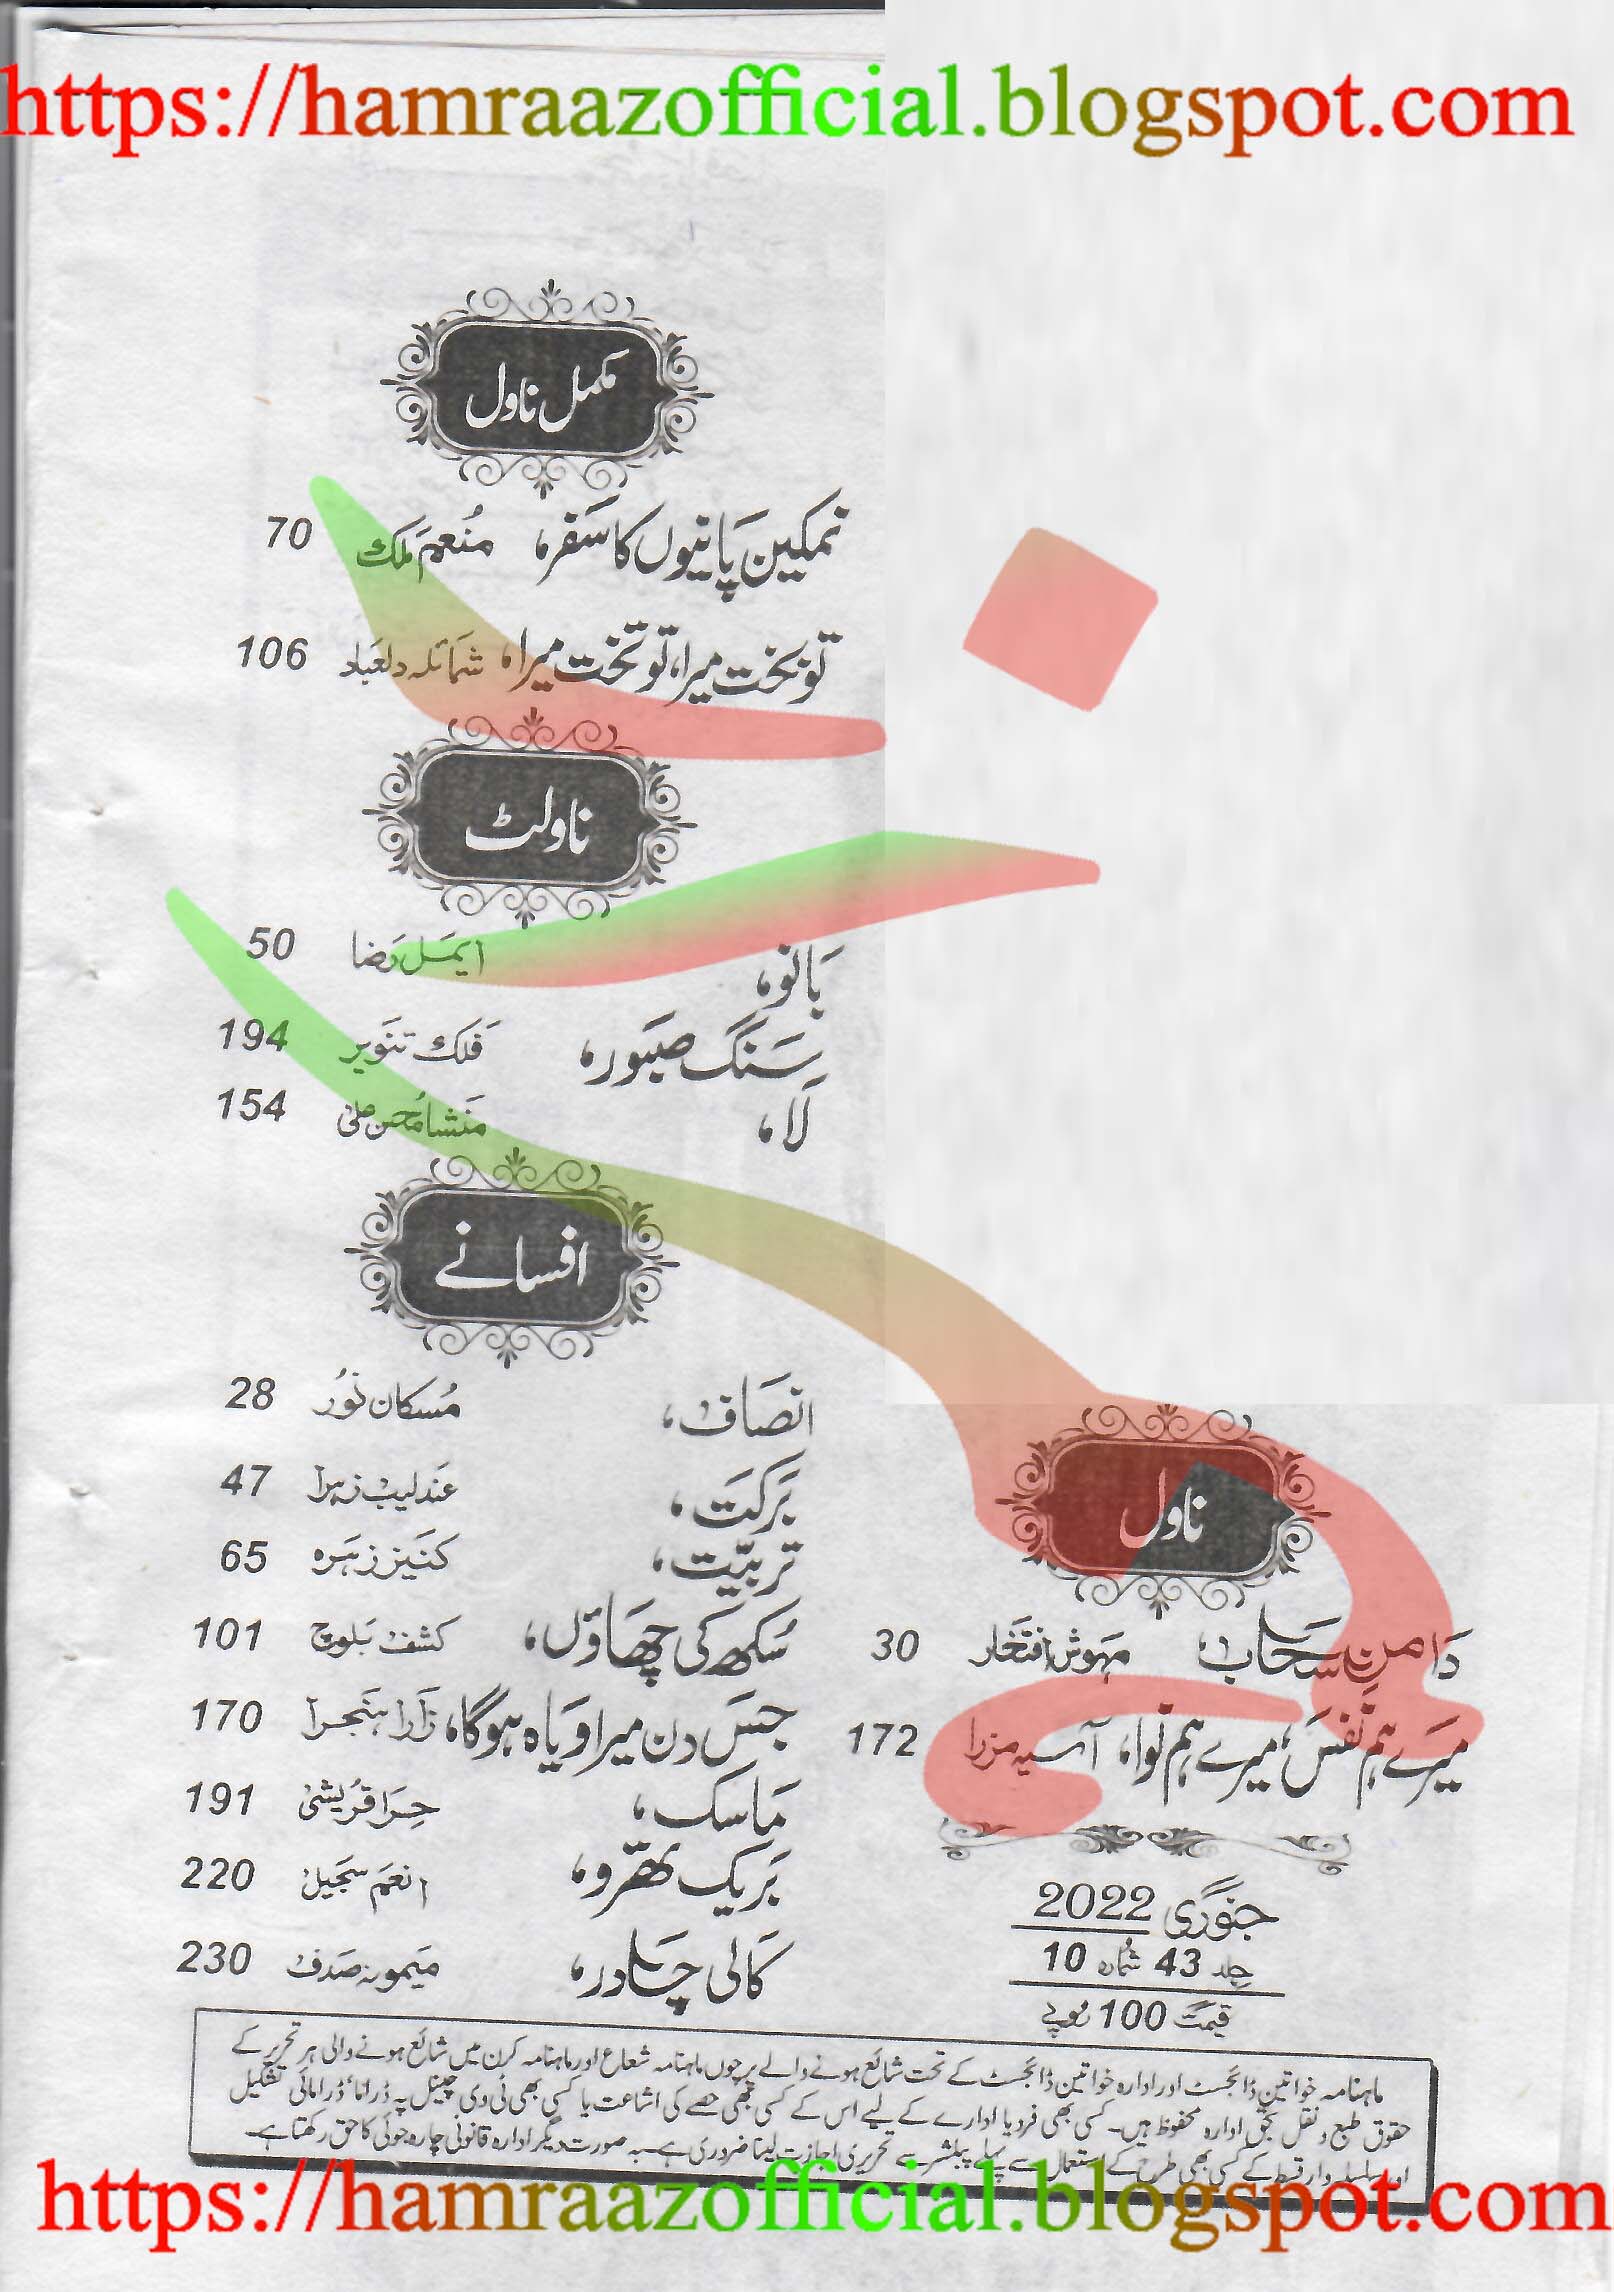 https://hamraazofficial.blogspot.com
مکمل ناول
نمکین پانیوں کا سفر، منعم ملک 70
تو بخت میرا، تو تخت میرا، شمائلہ دلعباد 106
ناولٹ
بانو، ایمل رضا 50
سنگ صبور، فلک تنویر 194
لا، منشا محسن علی 154
افسانے
انصاف، مسکان نور 28
برکت، عندلیب زہرا 47
تربیت، کنیز زہرہ 65
سکھ کی چھاؤں، کشف بلوچ 101
جس دن میرا ویاہ ہوگا، زارا ہنجرا 170
ماسک، حرا قریشی 191
بریک تھرو، انعم سجیل 220
کالی چادر، میمونہ صدف 230
ناول
دامن سحاب، مہوش افتخار 30
میرے ہم نفس، میرے ہم نوا، آسیہ مرزا 172
جنوری 2022
جلد 43 شمارہ 10
قیمت 100 روپے
ماہنامہ خواتین ڈائجسٹ اور ادارہ خواتین ڈائجسٹ کے تحت شائع ہونے والے پرچوں ماہنامہ شعاع اور ماہنامہ کرن میں شائع ہونے والی ہر تحریر کے
حقوق طبع و نقل بحق ادارہ محفوظ ہیں۔ کسی بھی فرد یا ادارے کے لیے اس کے کسی بھی حصے کی اشاعت یا کسی بھی ٹی وی چینل پہ ڈراما، ڈرامائی تشکیل
اور سلسلہ وار قسط کے کسی بھی طرح کے استعمال سے پہلے پبلشر سے تحریری اجازت لینا ضروری ہے۔ بہ صورت دیگر ادارہ قانونی چارہ جوئی کا حق رکھتا ہے۔
https://hamraazofficial.blogspot.com